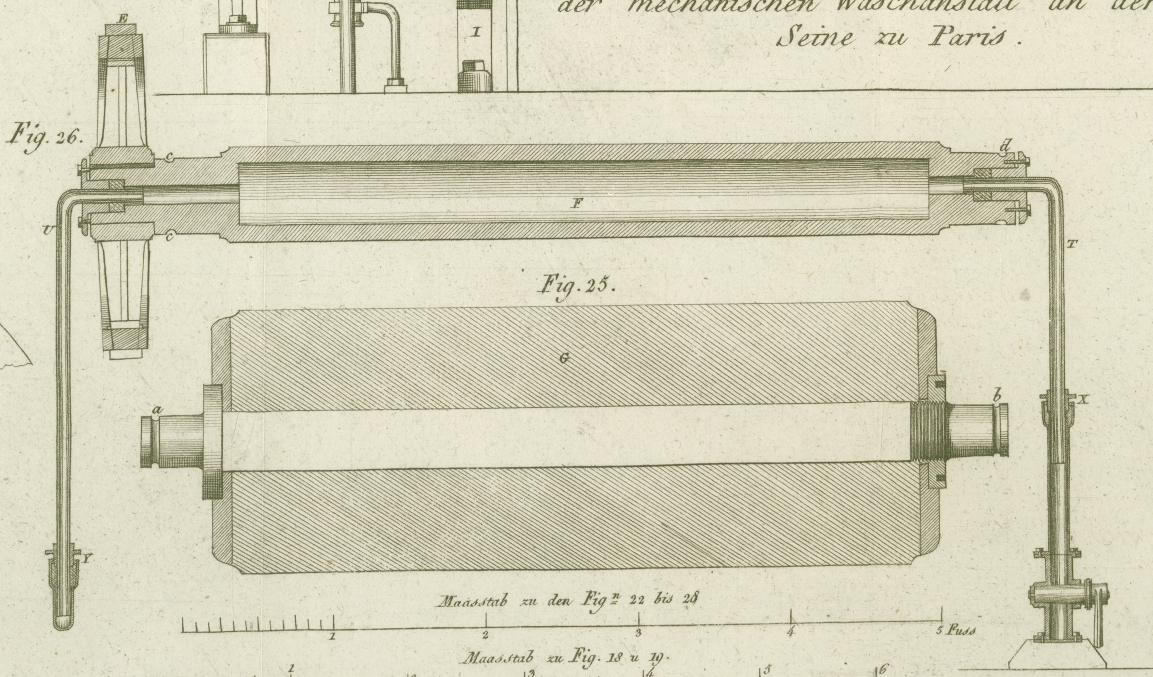 der mechanischen Waschanstalt an der
Seine zu Paris.
E
I
Fig. 26.
c
d
F
U
c
T
Fig. 25.
G
a
b
X
Y
Maasstab zu den Fign 22 bis 28
1 2 3 4 5 Fuss
Maasstab zu Fig. 18 u 19.
1 3 4 5 6